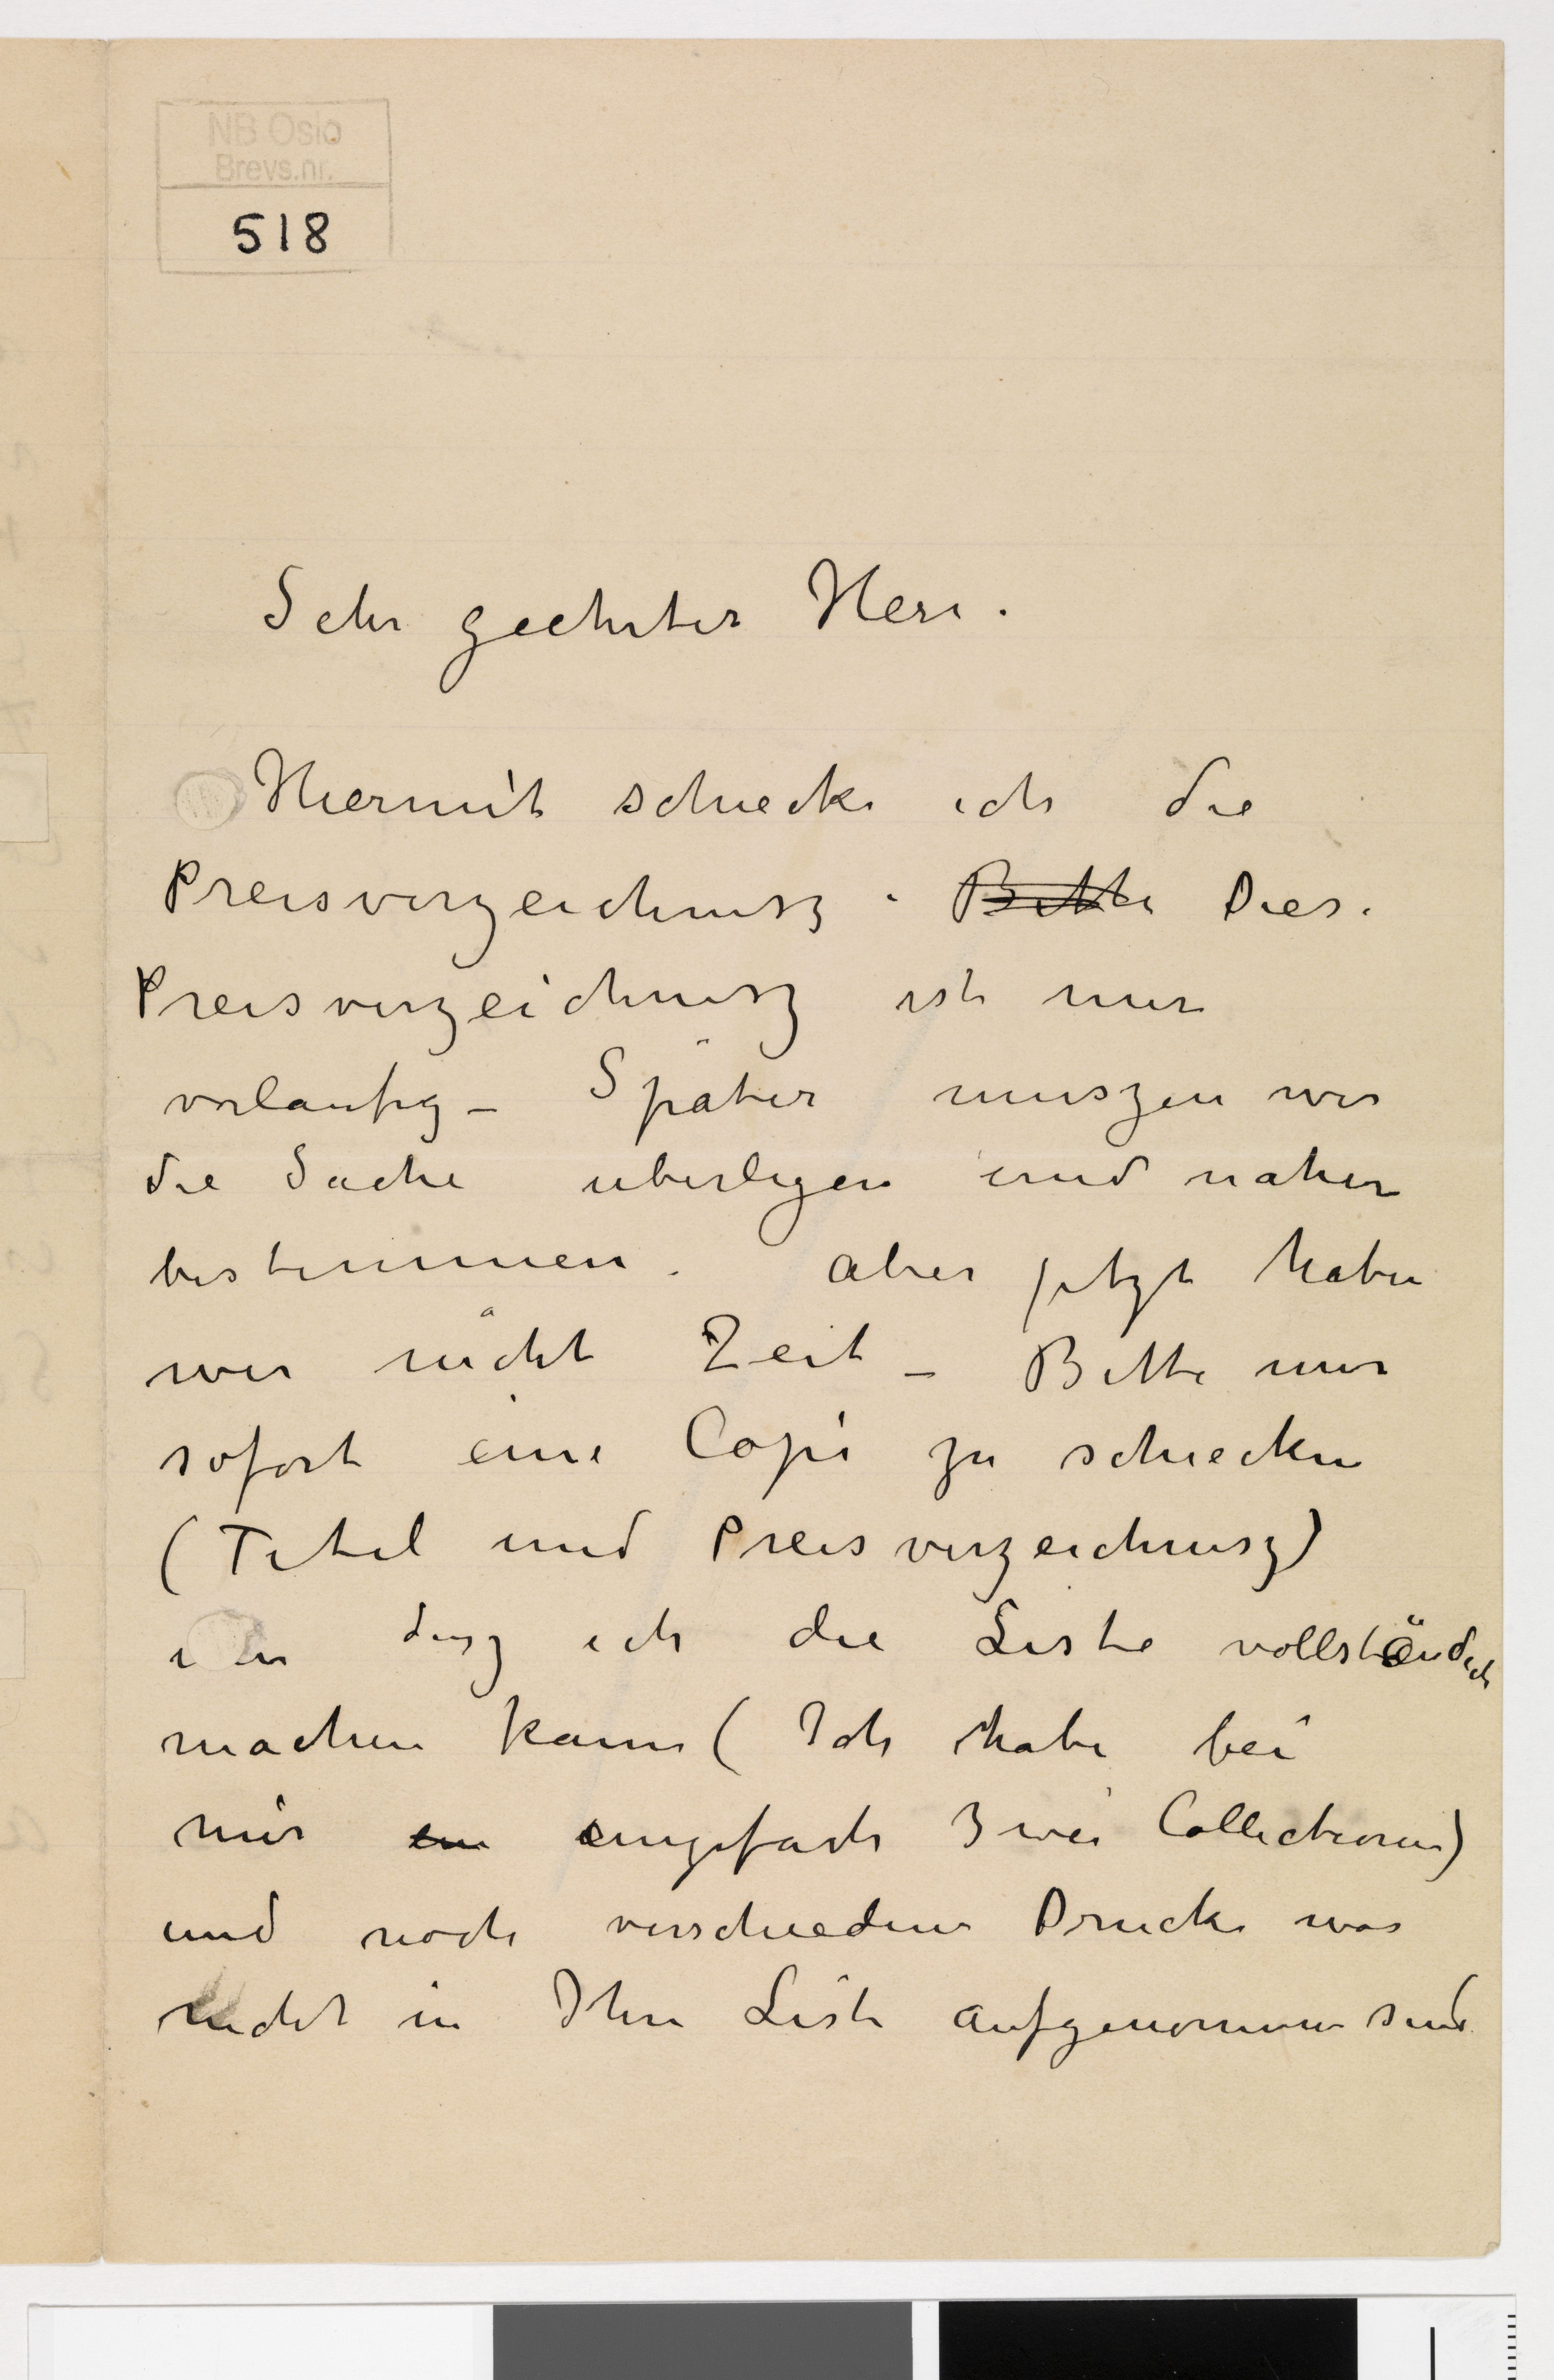 NB Oslo
Brevs.nr.
518
Sehr geehrter Herr.
Hiermit schiecke ich die
Preisverzeichnusz. Bitte Diese
Preisverzeichnusz ist nur
vorlaufig – Später muszen wir
die Sache uberlegen und naher
bestimmen. Aber jetzt haben
wir nicht Zeit – Bitte mir
sofort eine Copi zu schiecken
(Titel und Preisverzeichnusz)
dasz ich die Liste vollständich
machen kann (Ich habe bei
mir ein ungefähr Zwei Collectionen)
und noch verschiedene Drucke was
nicht in Ihre Liste aufgenommen sind